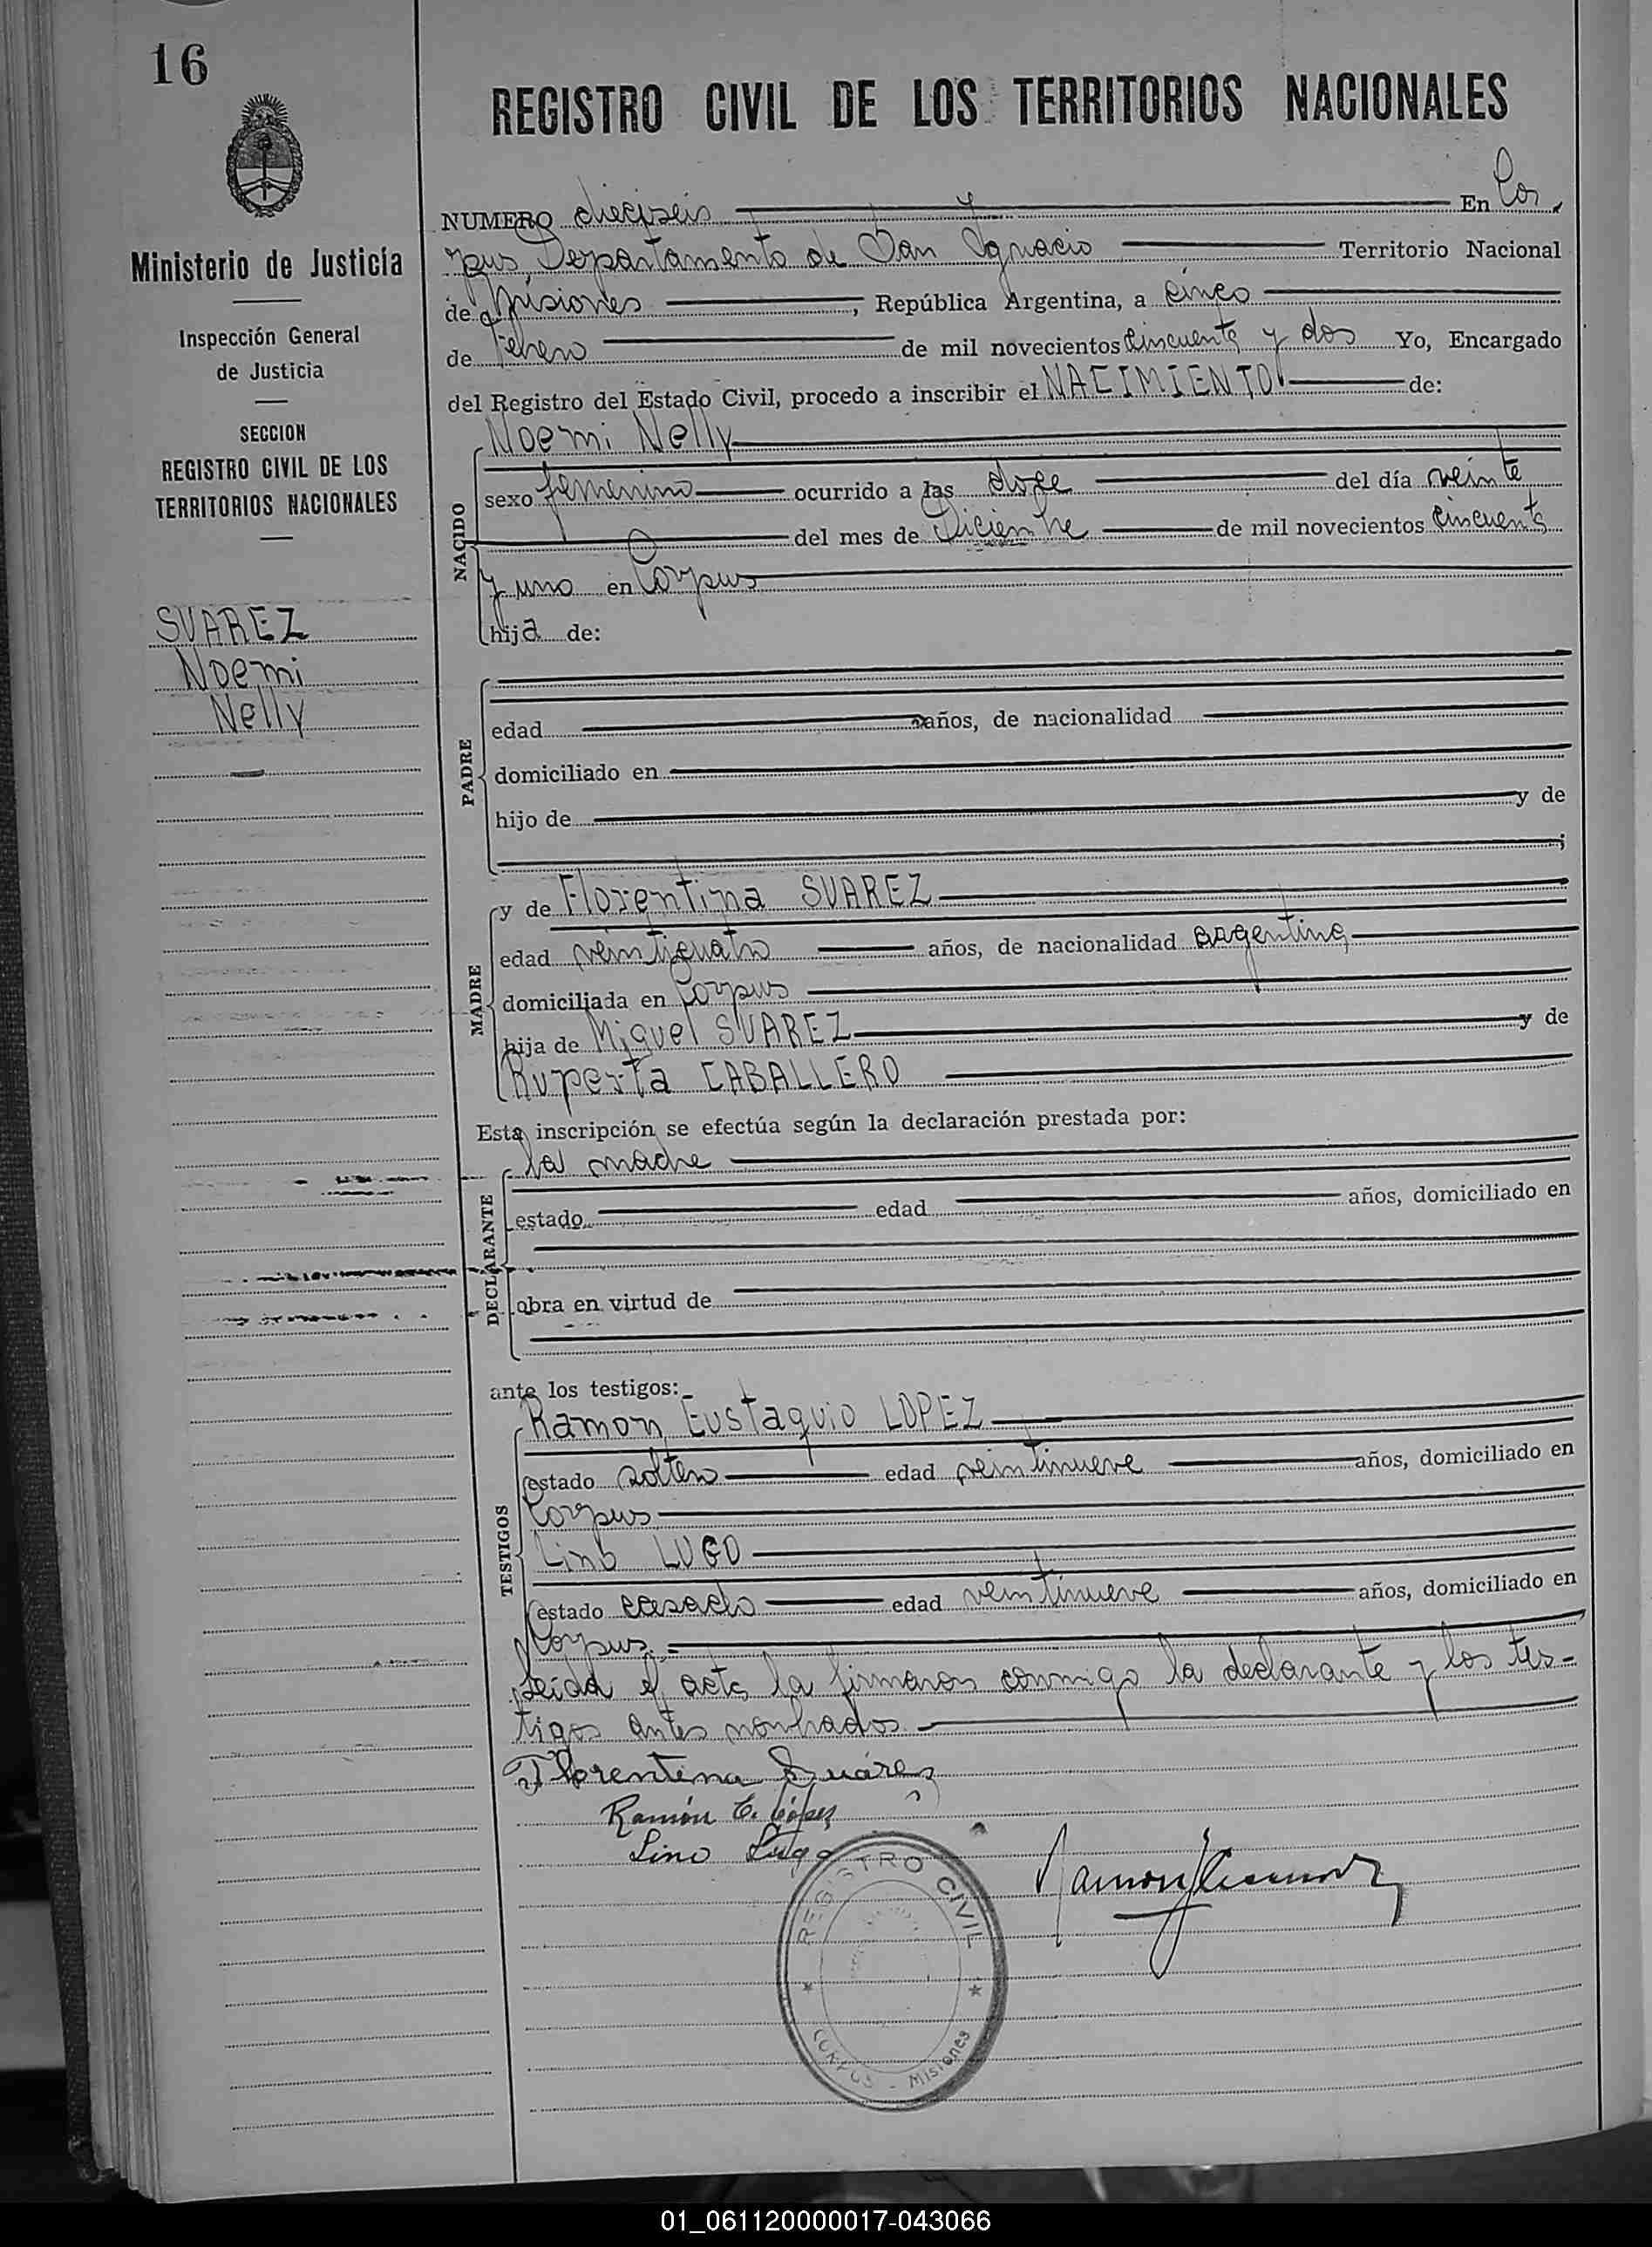 16
REGISTRO CIVIL DE LOS TERRITORIOS NACIONALES
Ministerio de Justicia
Inspección General
de Justicia
SECCION
REGISTRO CIVIL DE LOS
TERRITORIOS NACIONALES
SUAREZ
Noemi
Nelly
NUMERO dieciseis En Cor
pus, Departamento de San Ignacio Territorio Nacional
de Misiones, República Argentina, a cinco
de Febrero de mil novecientos cincuenta y dos Yo, Encargado
del Registro del Estado Civil, procedo a inscribir el NACIMIENTO de:
NACIDO
Noemi Nelly
sexo femenino ocurrido a las doce del día veinte
del mes de Diciembre de mil novecientos cincuenta
y uno en Corpus
hija de:
PADRE
edad años, de nacionalidad
domiciliado en
hijo de y de
;
MADRE
y de Florentina SUAREZ
edad veinticuatro años, de nacionalidad argentina
domiciliada en Corpus
hija de Miguel SUAREZ y de
Ruperta CABALLERO
Esta inscripción se efectúa según la declaración prestada por:
DECLARANTE
la madre
estado edad años, domiciliado en
obra en virtud de
ante los testigos:
TESTIGOS
Ramon Eustaquio LOPEZ
estado soltero edad veintinueve años, domiciliado en
Corpus
Lino LUGO
estado casado edad veintinueve años, domiciliado en
Corpus.
Leida el acta, la firmaron conmigo la declarante y los tes-
tigos antes nombrados
Florentina Suárez
Ramón E. López
Lino Lugo
REGISTRO CIVIL
CORPUS - Misiones
01_061120000017-043066